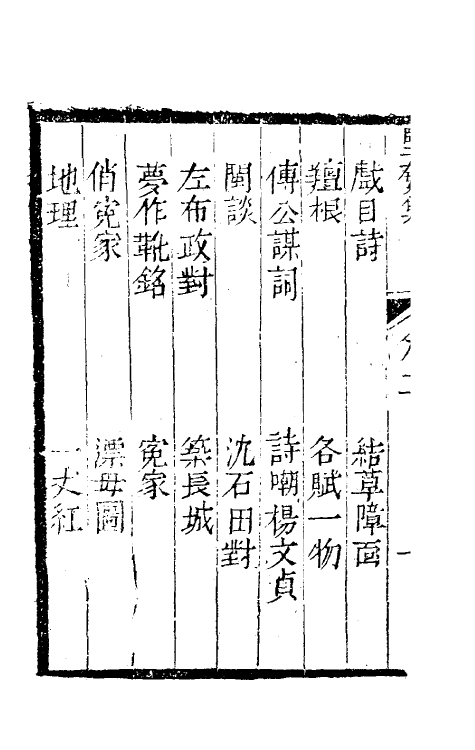 戲目詩　結草障面
羶根　各賦一物
傅公謀詞　詩嘲楊文貞
閩談　沈石田對
左布政對　築長城
夢作靴銘　寃家
俏寃家　漂母圖
地理　一丈紅